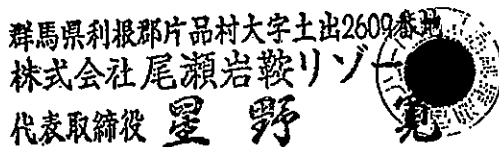 群馬県利根郡片品村大字土出2609番地
株式会社尾瀬岩鞍リゾー
代表取締役 星野 寛